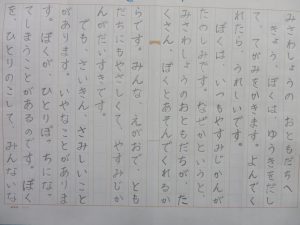 みさわしょうの おともだちへ
きょう、ぼくは ゆうきをだし
て、てがみをかきます。よんでく
れたら、うれしいです。
ぼくは、いつもやすみじかんが
たのしみです。なぜかというと、
みさわしょうのおともだちが、た
くさん、ぼくとあそんでくれるか
らです。みんな、えがおで、とも
だちにもやさしくて、やすみじか
んがだいすきです。
でも、さいきん、さみしいこと
があります。いやなことがありま
す。ぼくが、ひとりぼっちにな
てしまうことがあるのです。ぼく
を、ひとりのこして、みんないな